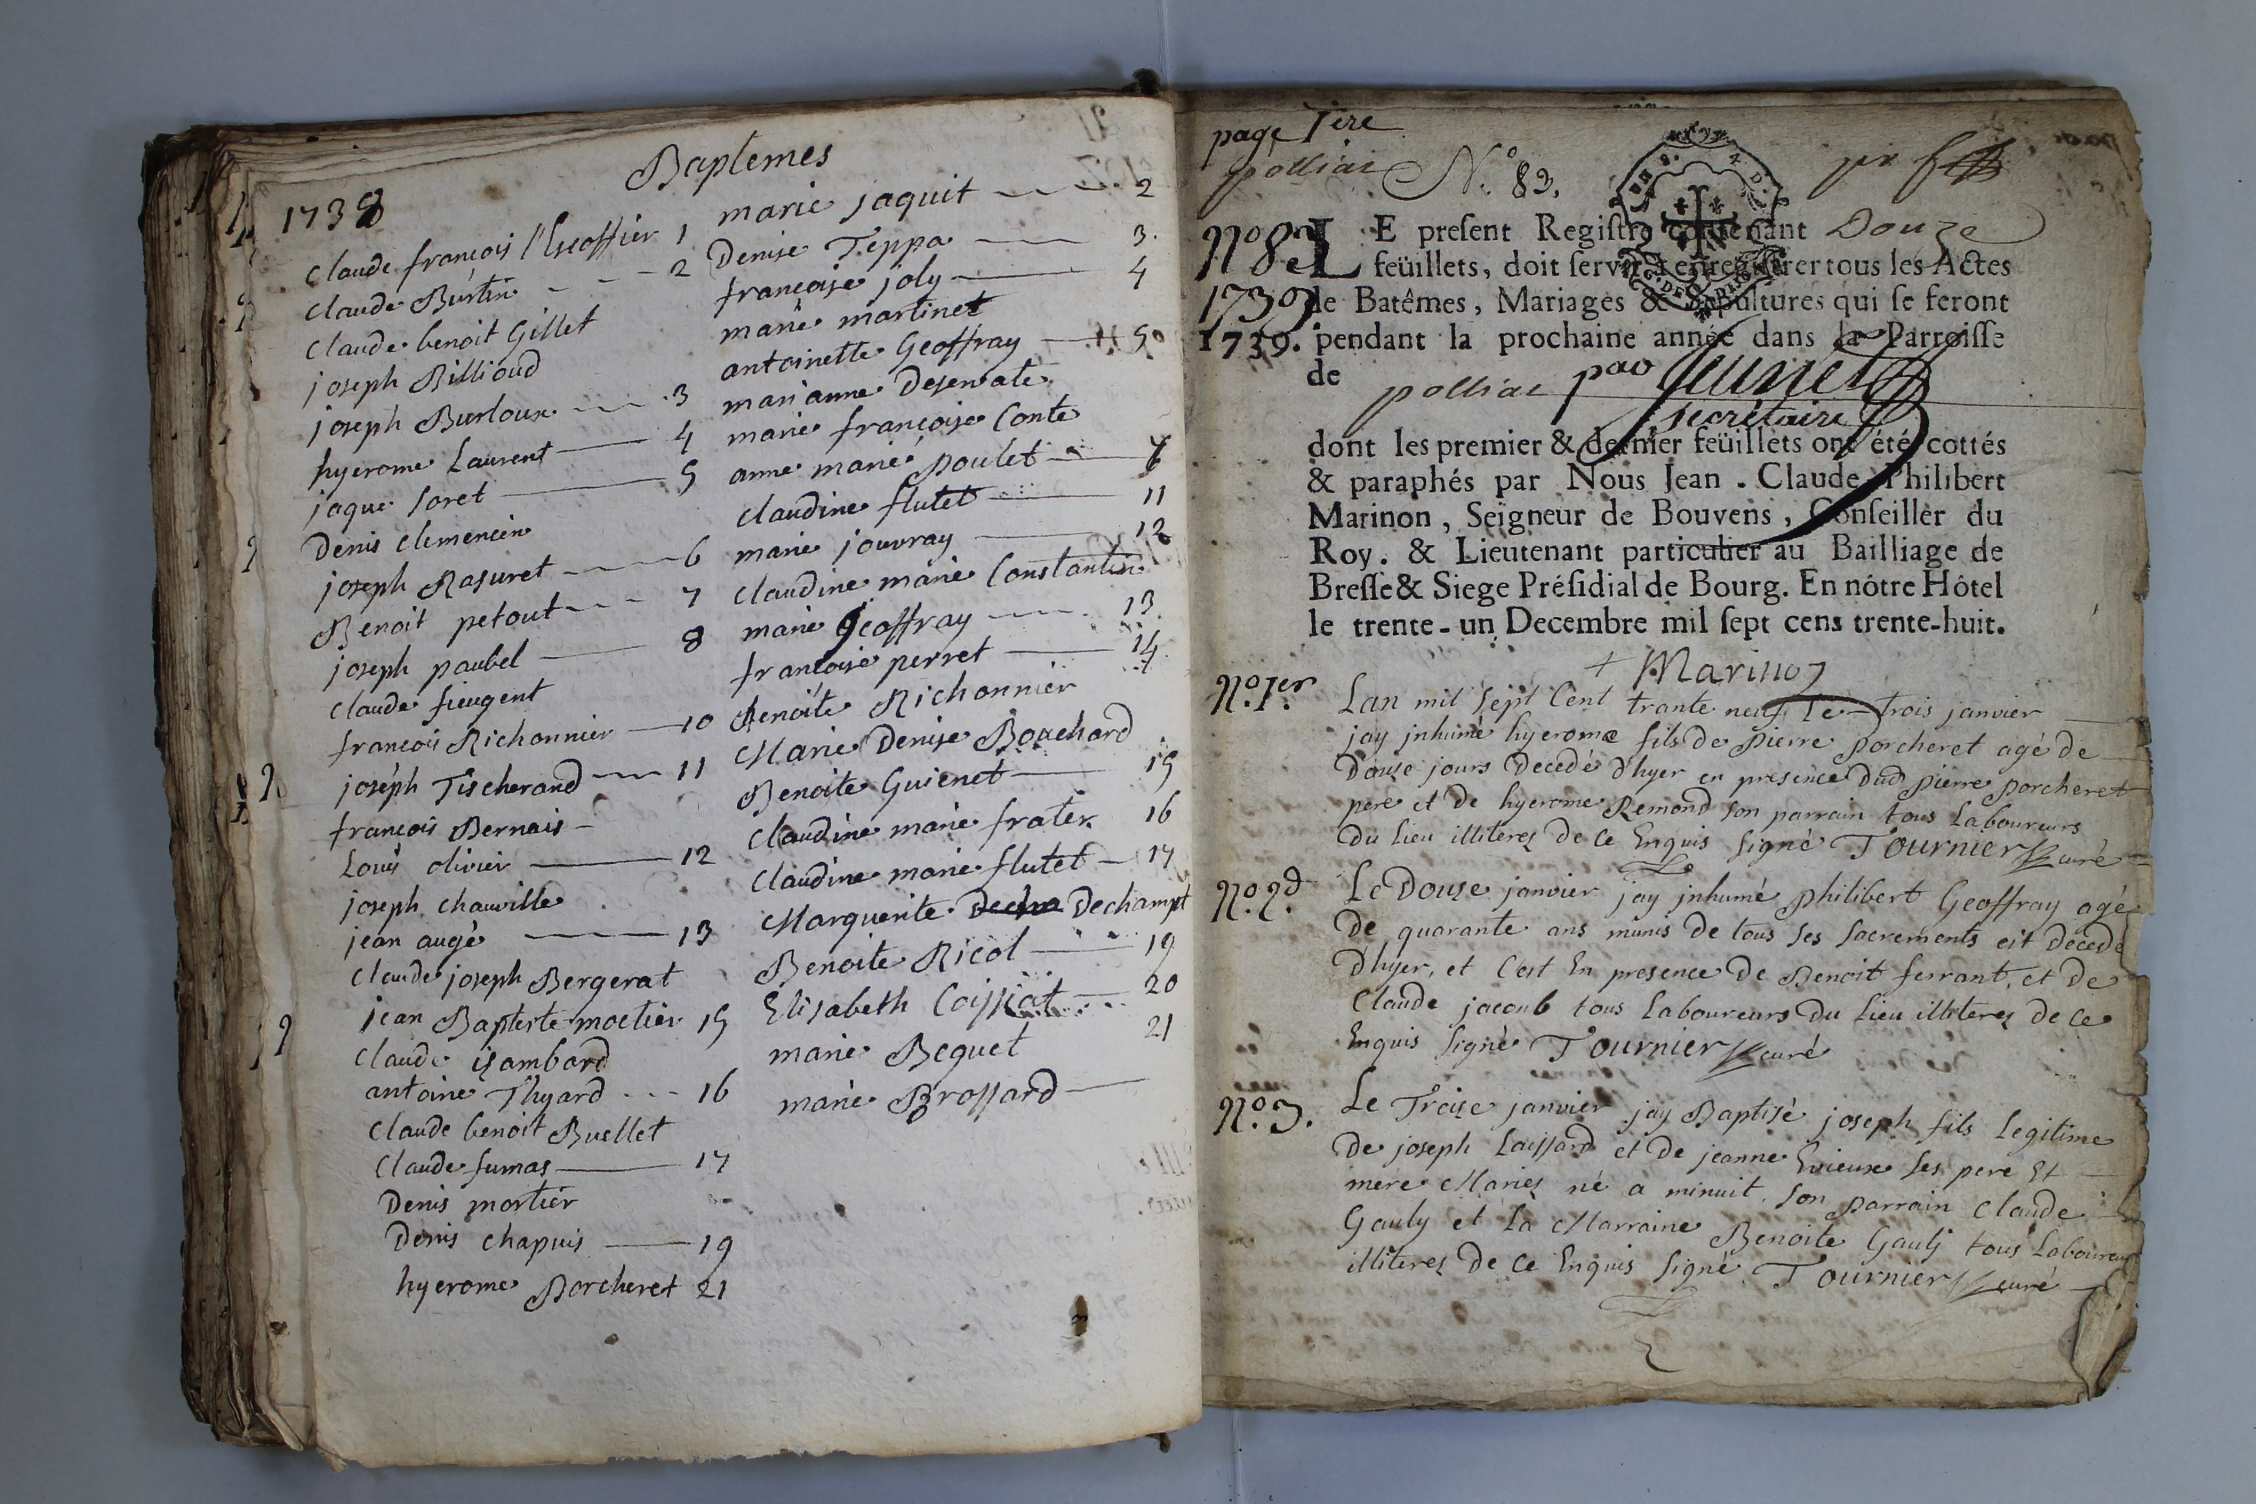 Baptemes
1738
Claude françois l'Escoffier 1
Claude Burtin 2
Claude benoit Gillet
joseph Billioud
joseph Burloux 3
hyerome Laurent 4
jaque Loret 5
Denis Clemencin
joseph Rasuret 6
Benoit petout 7
joseph paubel 8
Claude fieugent
françois Richonnier 10
joseph Tischerand 11
françois Bernais
Louis olivier 12
joseph chauville
jean augé 13
Claude joseph Bergerat
jean Baptiste moetier 15
Claude isambard
antoine Thyard 16
Claude benoit Buellet
Claude fumas 17
Denis mortier
Denis chapuis 19
hyerome Porcheret 21
marie jaquit 2
Denise Teppa 3
françoise joly 4
marie martinet
antoinette Geoffray 5
marianne Desenvate
marie françoise Conte
anne marie poulet
Claudine flutet 11
marie jouvray 12
Claudine marie Constantin
marie Geoffray 13
françoise perret 14
Benoite Richonnier
Marie Denise Bouchard
Benoite Guienet 15
Claudine marie frater 16
Claudine marie flutet 17
Marguerite Dechampt
Benoite Ricol 19
Elisabeth Coissiat 20
marie Bequet 21
marie Brossard
page 1ere
polliat N.º 83.
Nº 83
1739
1739.
LE present Registre contenant Douze
feüillets, doit servir à enregistrer tous les Actes
de Batêmes, Mariages & Sepultures qui se feront
pendant la prochaine année dans la Parroisse
de polliat par Jeunet
secretaire
dont les premier & dernier feüillets ont été cottés
& paraphés par Nous Jean. Claude Philibert
Marinon, Seigneur de Bouvens, Conseiller du
Roy. & Lieutenant particulier au Bailliage de
Bresse & Siege Présidial de Bourg. En nôtre Hôtel
le trente-un Decembre mil sept cens trente-huit.
Marinon
Nº.1er. Lan mil sept Cent trante neuf Le trois janvier
jay jnhumé hyerome fils de Pierre Porcheret agé de
Douze jours Decedé d'hyer en presence Dud Pierre Porcheret
pere et de hyerome Remond son parrain tous Laboureurs
Du Lieu illiterez de Ce Enquis Signé Tournier curé
Nº.2d. Le Douze janvier jay jnhumé philibert Geoffray agé
De quarante ans munis de tous ses sacrements est Decedé
D'hyer, et C'est En presence De Benoit ferrant, et De
Claude jacoub tous Laboureurs Du Lieu illiterez De Ce
Enquis Signé Tournier curé
Nº.3. Le Treize janvier jay Baptisé joseph fils Legitime
De joseph Laissard et De jeanne Evieux Ses pere Et
mere Mariez né a minuit. Son parrain Claude
Gauly et La Marraine Benoite Gauly tous Laboureurs
illiterez De Ce Enquis Signé Tournier curé